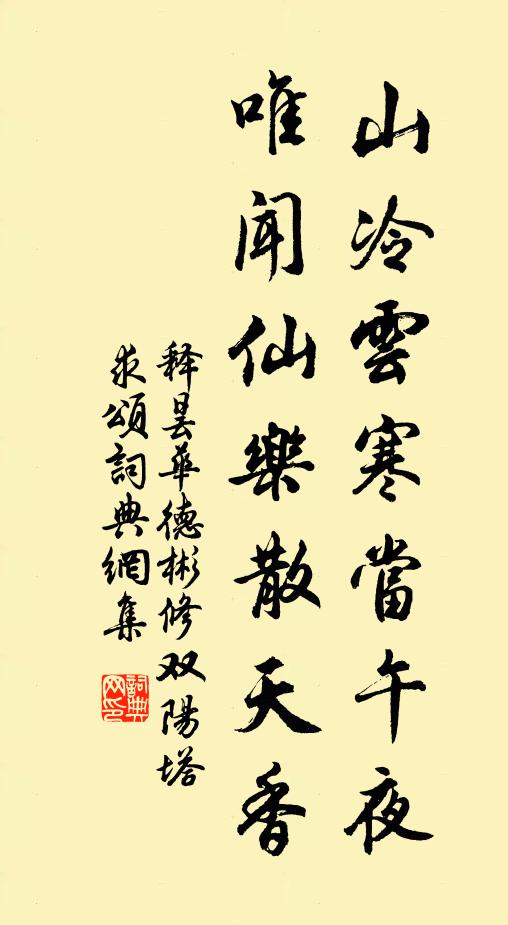 山冷雲寒當午夜
唯聞仙樂散天香
释曇華德彬修双陽塔
求頌詞典網集
詞典
网印